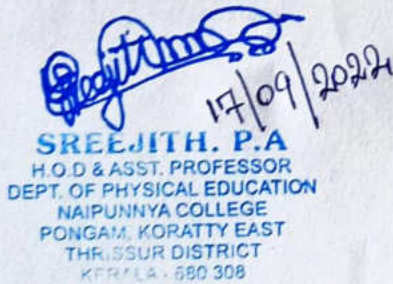 17/09/2022
SREEJITH. P.A
H.O.D & ASST. PROFESSOR
DEPT. OF PHYSICAL EDUCATION
NAIPUNNYA COLLEGE
PONGAM, KORATTY EAST
THRISSUR DISTRICT
KERALA - 680 308